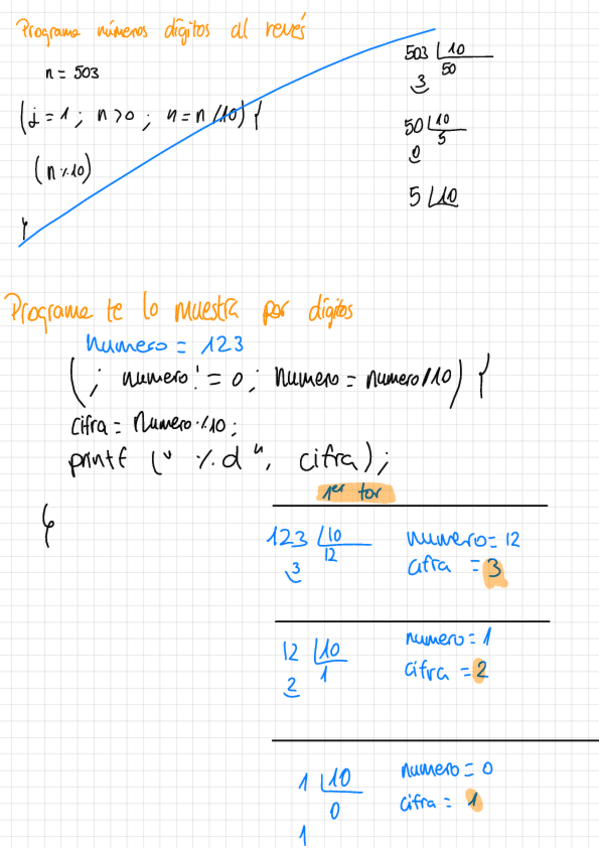 Programa números dígitos al revés
n = 503
(j = 1 ; n > 0 ; n = n / 10) {
(n % 10)
}
503 | 10
3 50
50 | 10
0 5
5 | 10
Programa te lo muestra por dígitos
Numero = 123
( ; numero != 0 ; Numero = numero / 10) {
cifra = Numero % 10 ;
printf (" %d ", cifra) ;
}
1er for
123 | 10
3 12
numero = 12
cifra = 3
12 | 10
2 1
numero = 1
cifra = 2
1 | 10
1 0
numero = 0
cifra = 1